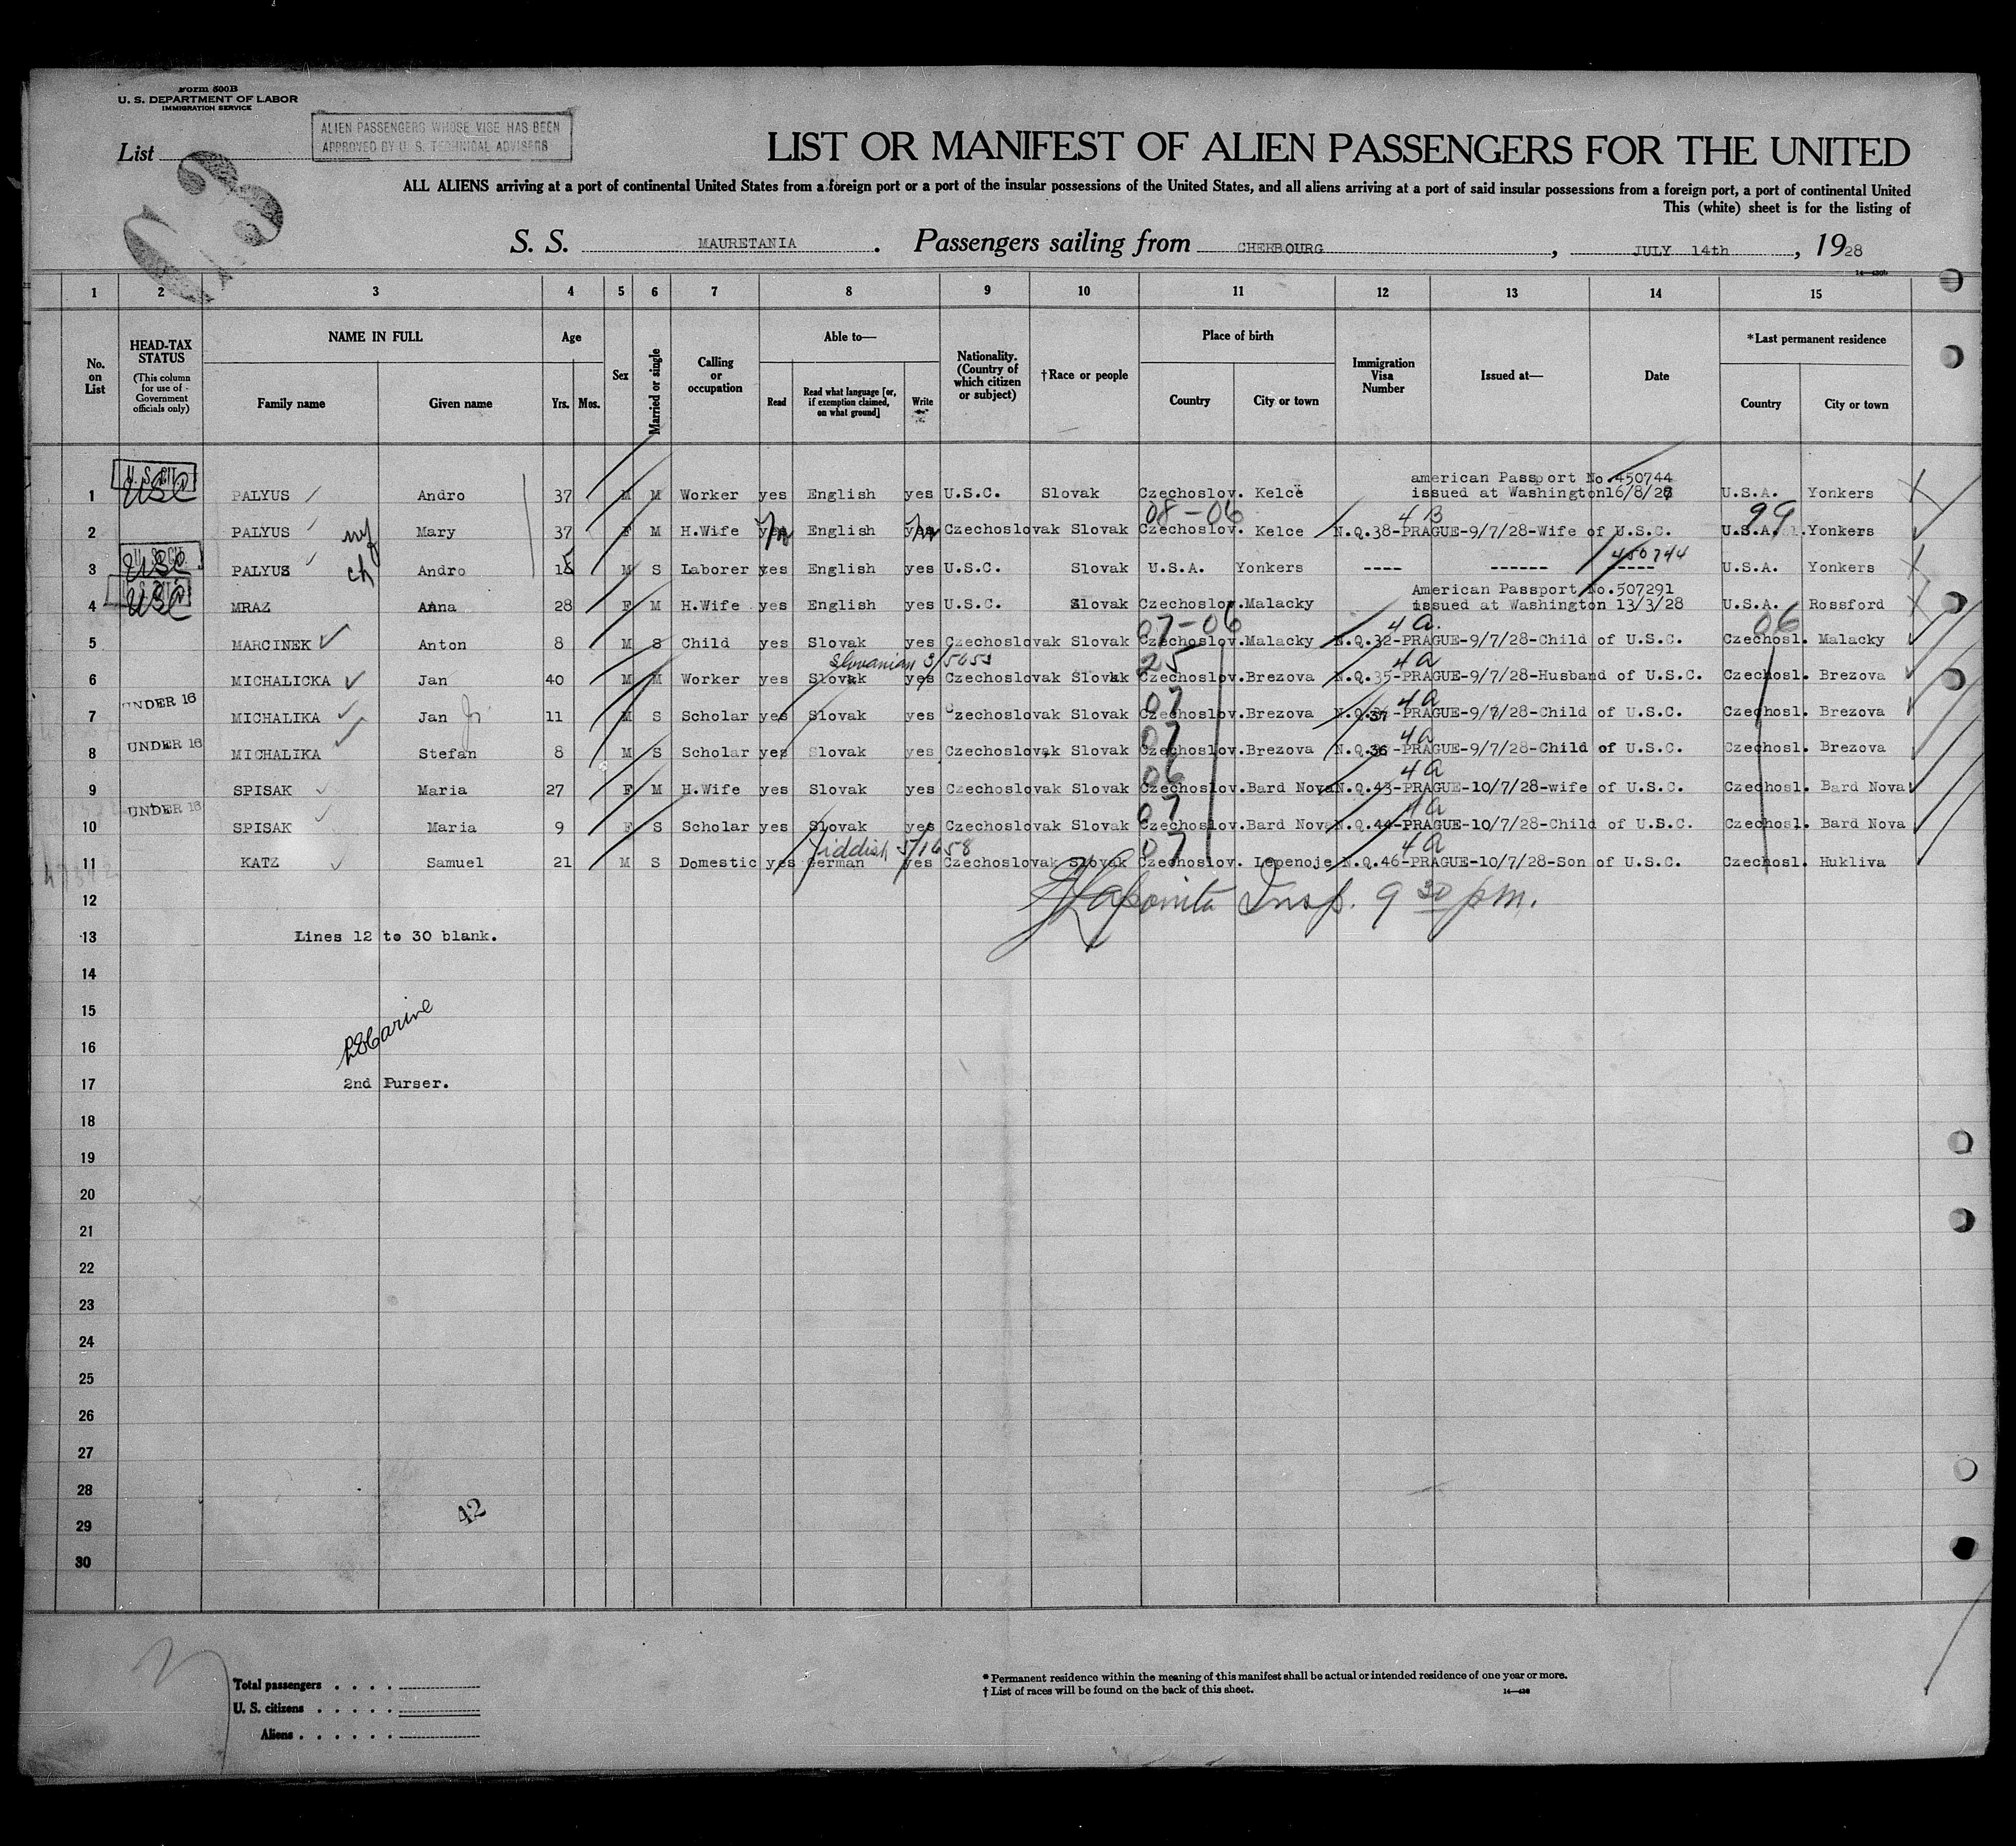 Form 500B
U. S. DEPARTMENT OF LABOR
IMMIGRATION SERVICE
ALIEN PASSENGERS WHOSE VISE HAS BEEN
APPROVED BY U. S. TECHNICAL ADVISERS
List
LIST OR MANIFEST OF ALIEN PASSENGERS FOR THE UNITED
ALL ALIENS arriving at a port of continental United States from a foreign port or a port of the insular possessions of the United States, and all aliens arriving at a port of said insular possessions from a foreign port, a port of continental United
This (white) sheet is for the listing of
S. S. MAURETANIA . Passengers sailing from CHERBOURG , JULY 14th , 1928
1 2 3 4 5 6 7 8 9 10 11 12 13 14 15
No. on List
HEAD-TAX STATUS (This column for use of Government officials only)
NAME IN FULL Family name Given name
Age Yrs. Mos.
Sex
Married or single
Calling or occupation
Able to— Read Read what language [or, if exemption claimed, on what ground] Write
Nationality. (Country of which citizen or subject)
†Race or people
Place of birth Country City or town
Immigration Visa Number
Issued at—
Date
*Last permanent residence Country City or town
U. S. CIT. american Passport No. 450744
1 USC PALYUS Andro 37 M M Worker yes English yes U.S.C. Slovak Czechoslov. Kelce issued at Washington 16/8/28 U.S.A. Yonkers
08-06 4 B 99
2 PALYUS Mary 37 F M H.Wife yes English yes Czechoslovak Slovak Czechoslov. Kelce N.Q.38-PRAGUE-9/7/28-Wife of U.S.C. U.S.A. Yonkers
U. S. CIT. 450744
3 USC PALYUS ch Andro 15 M S Laborer yes English yes U.S.C. Slovak U.S.A. Yonkers ---- ------ ----- U.S.A. Yonkers
U. S. CIT. American Passport No.507291
4 USC MRAZ Anna 28 F M H.Wife yes English yes U.S.C. Slovak Czechoslov. Malacky issued at Washington 13/3/28 U.S.A. Rossford
07-06 4 a. 06
5 MARCINEK Anton 8 M S Child yes Slovak yes Czechoslovak Slovak Czechoslov. Malacky N.Q.32-PRAGUE-9/7/28-Child of U.S.C. Czechosl. Malacky
Slovanian 25 4a
6 MICHALICKA Jan 40 M M Worker yes Slovak yes Czechoslovak Slovak Czechoslov. Brezova N.Q.35-PRAGUE-9/7/28-Husband of U.S.C. Czechosl. Brezova
UNDER 16 07 4a
7 MICHALIKA Jan Jr 11 M S Scholar yes Slovak yes Czechoslovak Slovak Czechoslov. Brezova N.Q.37-PRAGUE-9/7/28-Child of U.S.C. Czechosl. Brezova
UNDER 16 07 4a
8 MICHALIKA Stefan 8 M S Scholar yes Slovak yes Czechoslovak Slovak Czechoslov. Brezova N.Q.36-PRAGUE-9/7/28-Child of U.S.C. Czechosl. Brezova
06 4a
9 SPISAK Maria 27 F M H.Wife yes Slovak yes Czechoslovak Slovak Czechoslov. Bard Nova N.Q.43-PRAGUE-10/7/28-wife of U.S.C. Czechosl. Bard Nova
UNDER 16 07 4a
10 SPISAK Maria 9 F S Scholar yes Slovak yes Czechoslovak Slovak Czechoslov. Bard Nova N.Q.44-PRAGUE-10/7/28-Child of U.S.C. Czechosl. Bard Nova
Yiddish 5/1658 07 4a
11 KATZ Samuel 21 M S Domestic yes German yes Czechoslovak Slovak Czechoslov. Lepenoje N.Q.46-PRAGUE-10/7/28-Son of U.S.C. Czechosl. Hukliva
12 Insp. 9 30 pm.
13 Lines 12 to 30 blank.
14
15
16
17 2nd Purser.
18
19
20
21
22
23
24
25
26
27
28
29 42
30
Total passengers
U. S. citizens
Aliens
* Permanent residence within the meaning of this manifest shall be actual or intended residence of one year or more.
† List of races will be found on the back of this sheet.